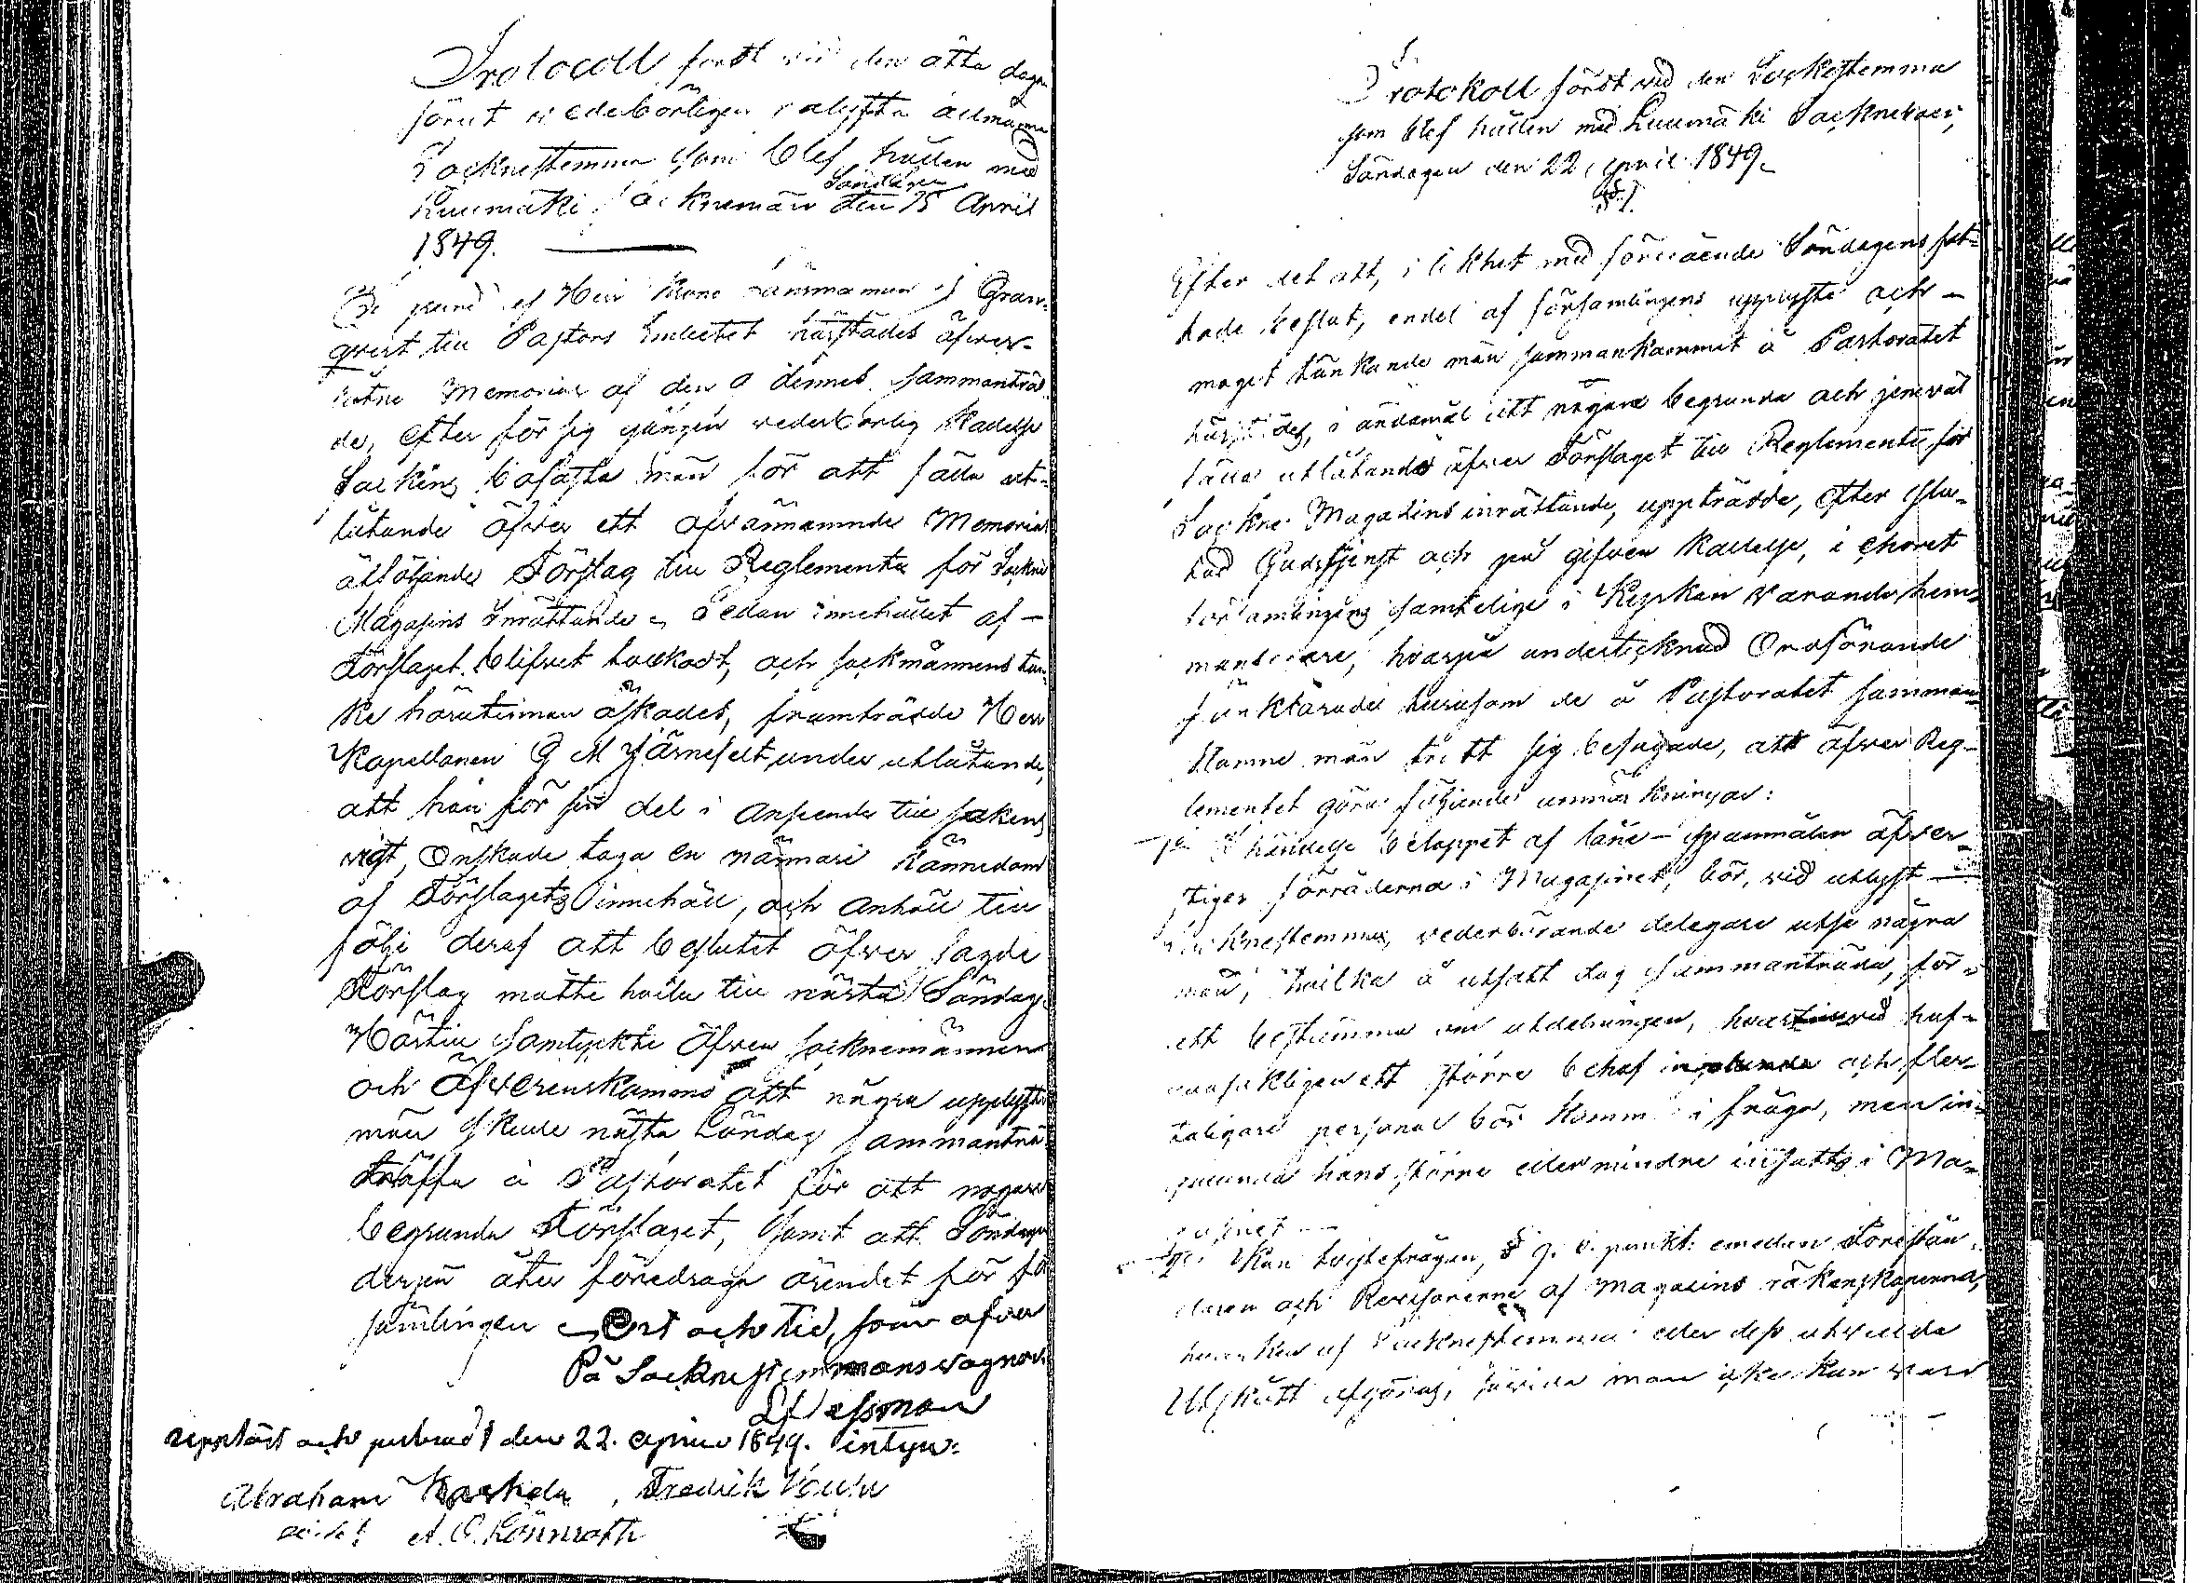 Protocoll fördt vid den åtta dagar
förut vederbörligen pålysta allmänna
Sockнestemma som blef hållen med
Luumäki Socknemän Söndagen den 15 April
1849.
På grund af Herr Krono Länsmannen J Gran-
qvist till Pastors Embetet härstädes öfver-
Memorial af den 9 dennes, sammanträd-
de, efter för sig gången vederbörlig Kallelse
Sockens bofasta män för att fälla ut-
låtande öfver ett ofvannämnde Memorial
åtföljande Förslag till Reglemente för Sockne
Magasins Inrättande. Sedan innehållet af
Förslaget blifvet tolkadt, och sockmännens tan-
ke häruti äskades, framträdde Herr
Kapellanen G M Järnefelt, under utlåtande,
att han för sin del i anseende till sakens
vigt, Önskade taga en närmare Kännedom
af Förslagets innehåll, och anhöll till
följe deraf att beslutet öfver sagde
Förslag måtte hvila till nästa Söndag.
Härtill samtyckte äfven socknemännen
och Öfverenskommo att några upplysta
män skulle nästa Söndag sammanträ-
träffa å Pastoratet för att nogare
begrunda Förslaget, samt att Söndagen
derpå åter föredraga ärendet för för-
samlingen Ort och tid, som ofvan
På Sockнestemmans vägnar
Uppläst och justeradt den 22. April 1849. intyga:
Abraham , Fredrik
A. E. Lönnroth
Protokoll fördt vid den Sockнestemma
som blef hållen med Luumäki Socknеboer,
Söndagen den 22 April 1849.
§ 1.
Efter det att, i likhet med föregående Söndagens fat-
tade beslut, endel af församlingens upplyste och
moget tänkande män sammankommit å Pastoratet
härstädes, i ändamål att nogare begrunda och
fälla utlåtande öfver Förslaget till Reglemente för
Sockne Magasins inrättande, uppträdde, efter slu-
tad Gudstjenst och på gifven Kallelse, i choret
församlingens samtelige i Kyrkan varande hem-
mansegare, hvarpå undertecknad Ordförande
förklarade hurusom de å Pastoratet samman-
komne män trott sig befogade, att öfver Reg-
lementet göra följande anmärkningar:
I händelse beloppet af låne-anmälan öfver-
stiger förråderna i Magasinet, bör, vid utlyst
Socknestemma, vederbörande delegare utse några
män, hvilka å utsatt dag sammanträda, för
att bestämma om utdelningen, hvarvid huf-
vudsakligen ett större behof och fler-
taligare personal bör komma i fråga, men in-
galunda hans större eller mindre insatts i Ma-
gasinet.
Kan tvistefrågan, § 9. punkt. emellan Förestån-
daren och Revisorerne af Magasins räkenskaperna,
af Socknestemma eller dess utvalda
Utskott afgöras, man icke kan vara